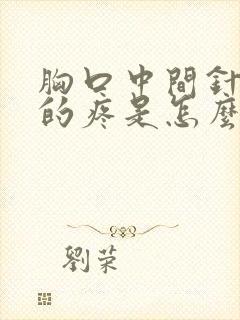 胸口中間針
的疼是怎麼
劉荣